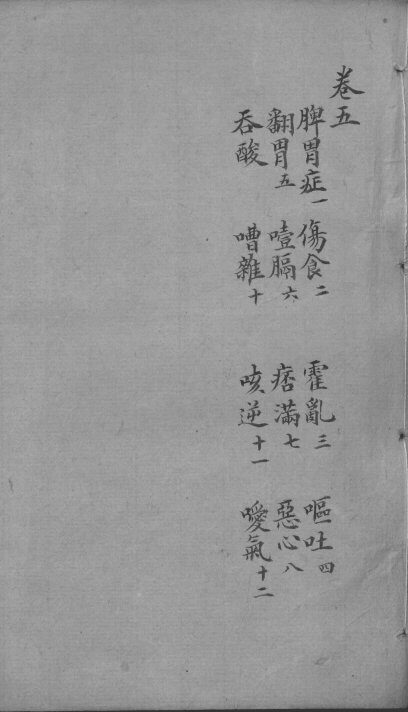 卷五
脾胃症一 傷食二 霍亂三 嘔吐四
翻胃五 噎膈六 痞滿七 惡心八
吞酸 嘈雜十 咳逆十一 噯氣十二